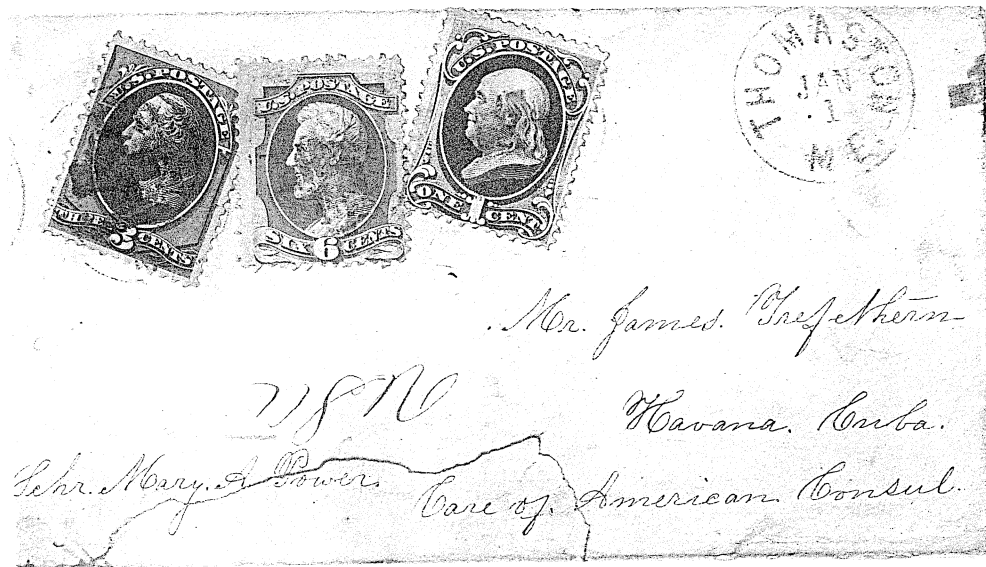 U.S. POSTAGE
THREE 3 CENTS
U.S. POSTAGE
SIX 6 CENTS
U.S. POSTAGE
ONE 1 CENT
THOMASTON
JAN
1
ME.
Mr. James. Trefethern
Havana. Cuba.
Schr. Mary. A Power.
Care of. American Consul.